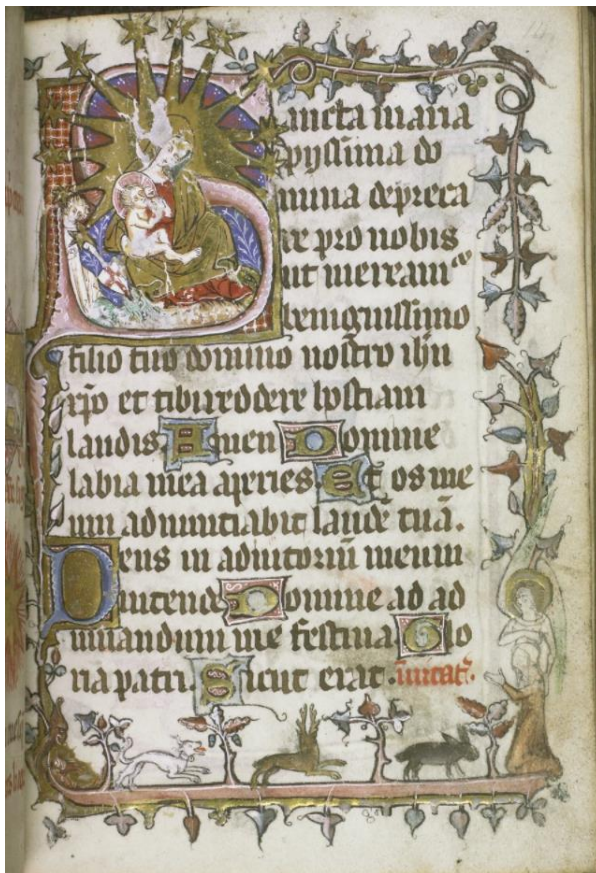 Sancta maria
pyssima do
mina depreca
re pro nobis
ut meream
benignissimo
filio tuo domino nostro ihu
xp̄o et tibi reddere hostiam
laudis Amen Domine
labia mea aperies Et os me
um adnunciabit laudē tuā.
Deus in adiutoriū meum
intende Domine ad ad
iuuandum me festina Glo
ria patri. Sicut erat. īuitat᷒.